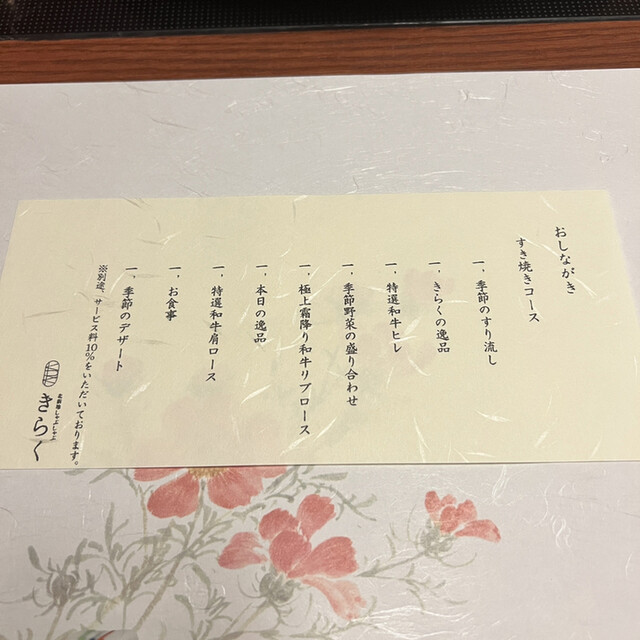 おしながき
すき焼きコース
一、季節のすり流し
一、きらくの逸品
一、特選和牛ヒレ
一、季節野菜の盛り合わせ
一、極上霜降り和牛リブロース
一、本日の逸品
一、特選和牛肩ロース
一、お食事
一、季節のデザート
※別途、サービス料10%をいただいております。
きらく